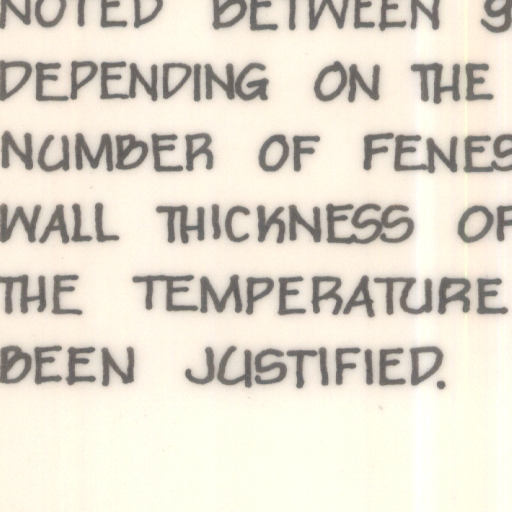 NOTED BETWEEN
DEPENDING ON THE
NUMBER OF
WALL THICKNESS
THE TEMPERATURE
BEEN JUSTIFIED.